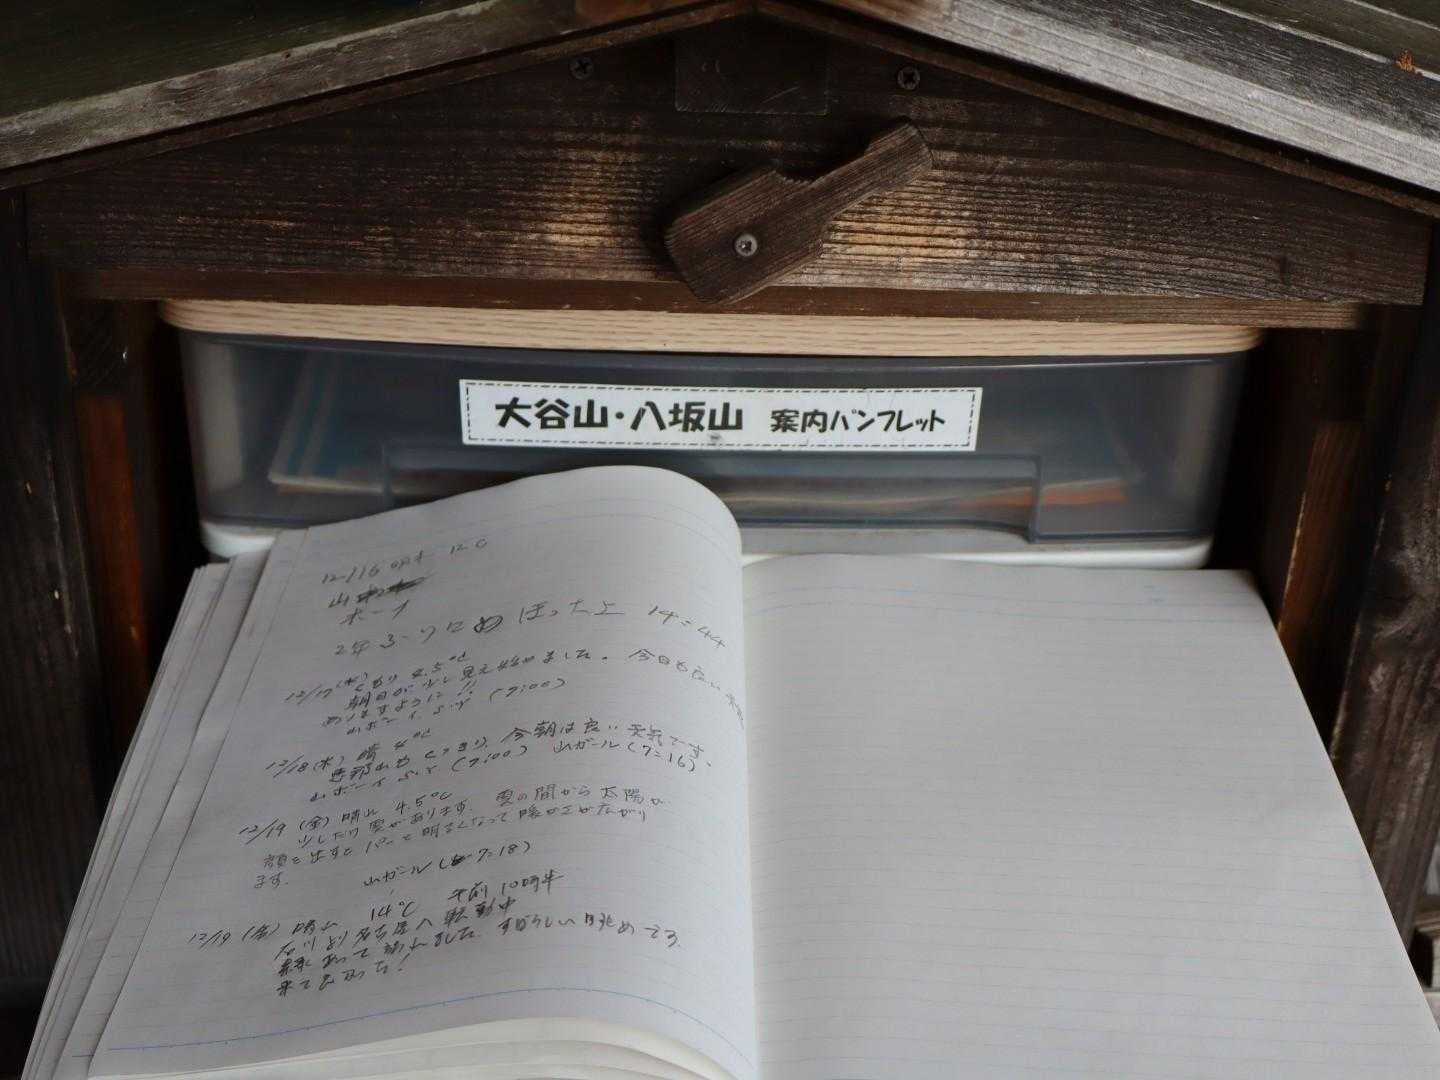 大谷山・八坂山 案内パンフレット
12/16 12℃
山
ボーイ
14:44
12/17(水) くもり 4.5℃
朝日が少し見え始めました。今日も良い
りますように!!
山ボーイ S.Y (7:00)
12/18(木) 晴 4℃
恵那山もくっきり、今朝は良い天気です。
山ボーイ S.Y (7:00) 山ガール(7:16)
12/19(金) 晴れ 4.5℃
少しだけ雲があります。雲の間から太陽が
顔を出すとパーと明るくなって暖かさが広がり
ます。
山ガール(7:18)
12/19(金) 晴れ 14℃ 午前10時半
石川より名古屋へ転勤中
縁あって 素晴らしい眺めです。
来て良かった!